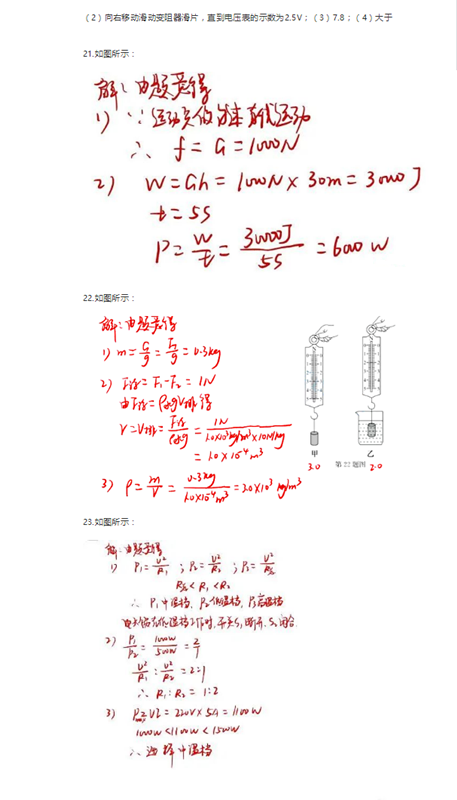 （2）向右移动滑动变阻器滑片，直到电压表的示数为2.5V；（3）7.8；（4）大于
21.如图所示：
解：由题意得
1）∵运动员做匀速直线运动
∴ f = G = 1000N
2） W = Gh = 1000N × 30m = 30000J
t = 5s
P = W/t = 30000J/5s = 6000W
22.如图所示：
解：由题意得
1) m = G/g = F₁/g = 0.3kg
2) F浮 = F₁ - F₂ = 1N
由F浮 = ρ水gV排 得
V = V排 = F浮/ρ水g = 1N/1.0×10³kg/m³×10N/kg
= 1.0×10⁻⁴m³
3) ρ = m/V = 0.3kg/1.0×10⁻⁴m³ = 3.0×10³kg/m³
甲 乙
3.0 第22题图 2.0
23.如图所示：
解：由题意得
1) P₁ = U²/R₁ ; P₂ = U²/R₂ ; P₃ = U²/R总
R总 < R₁ < R₂
∴ P₁中温档，P₂低温档，P₃高温档
S₁断开，S₂闭合
2) P₁/P₂ = 1000W/500W = 2/1
U²/R₁ : U²/R₂ = 2:1
∴ R₁:R₂ = 1:2
3) = UI = 220V × 5A = 1100W
1000W < 1100W < 1500W
∴ 选择中温档